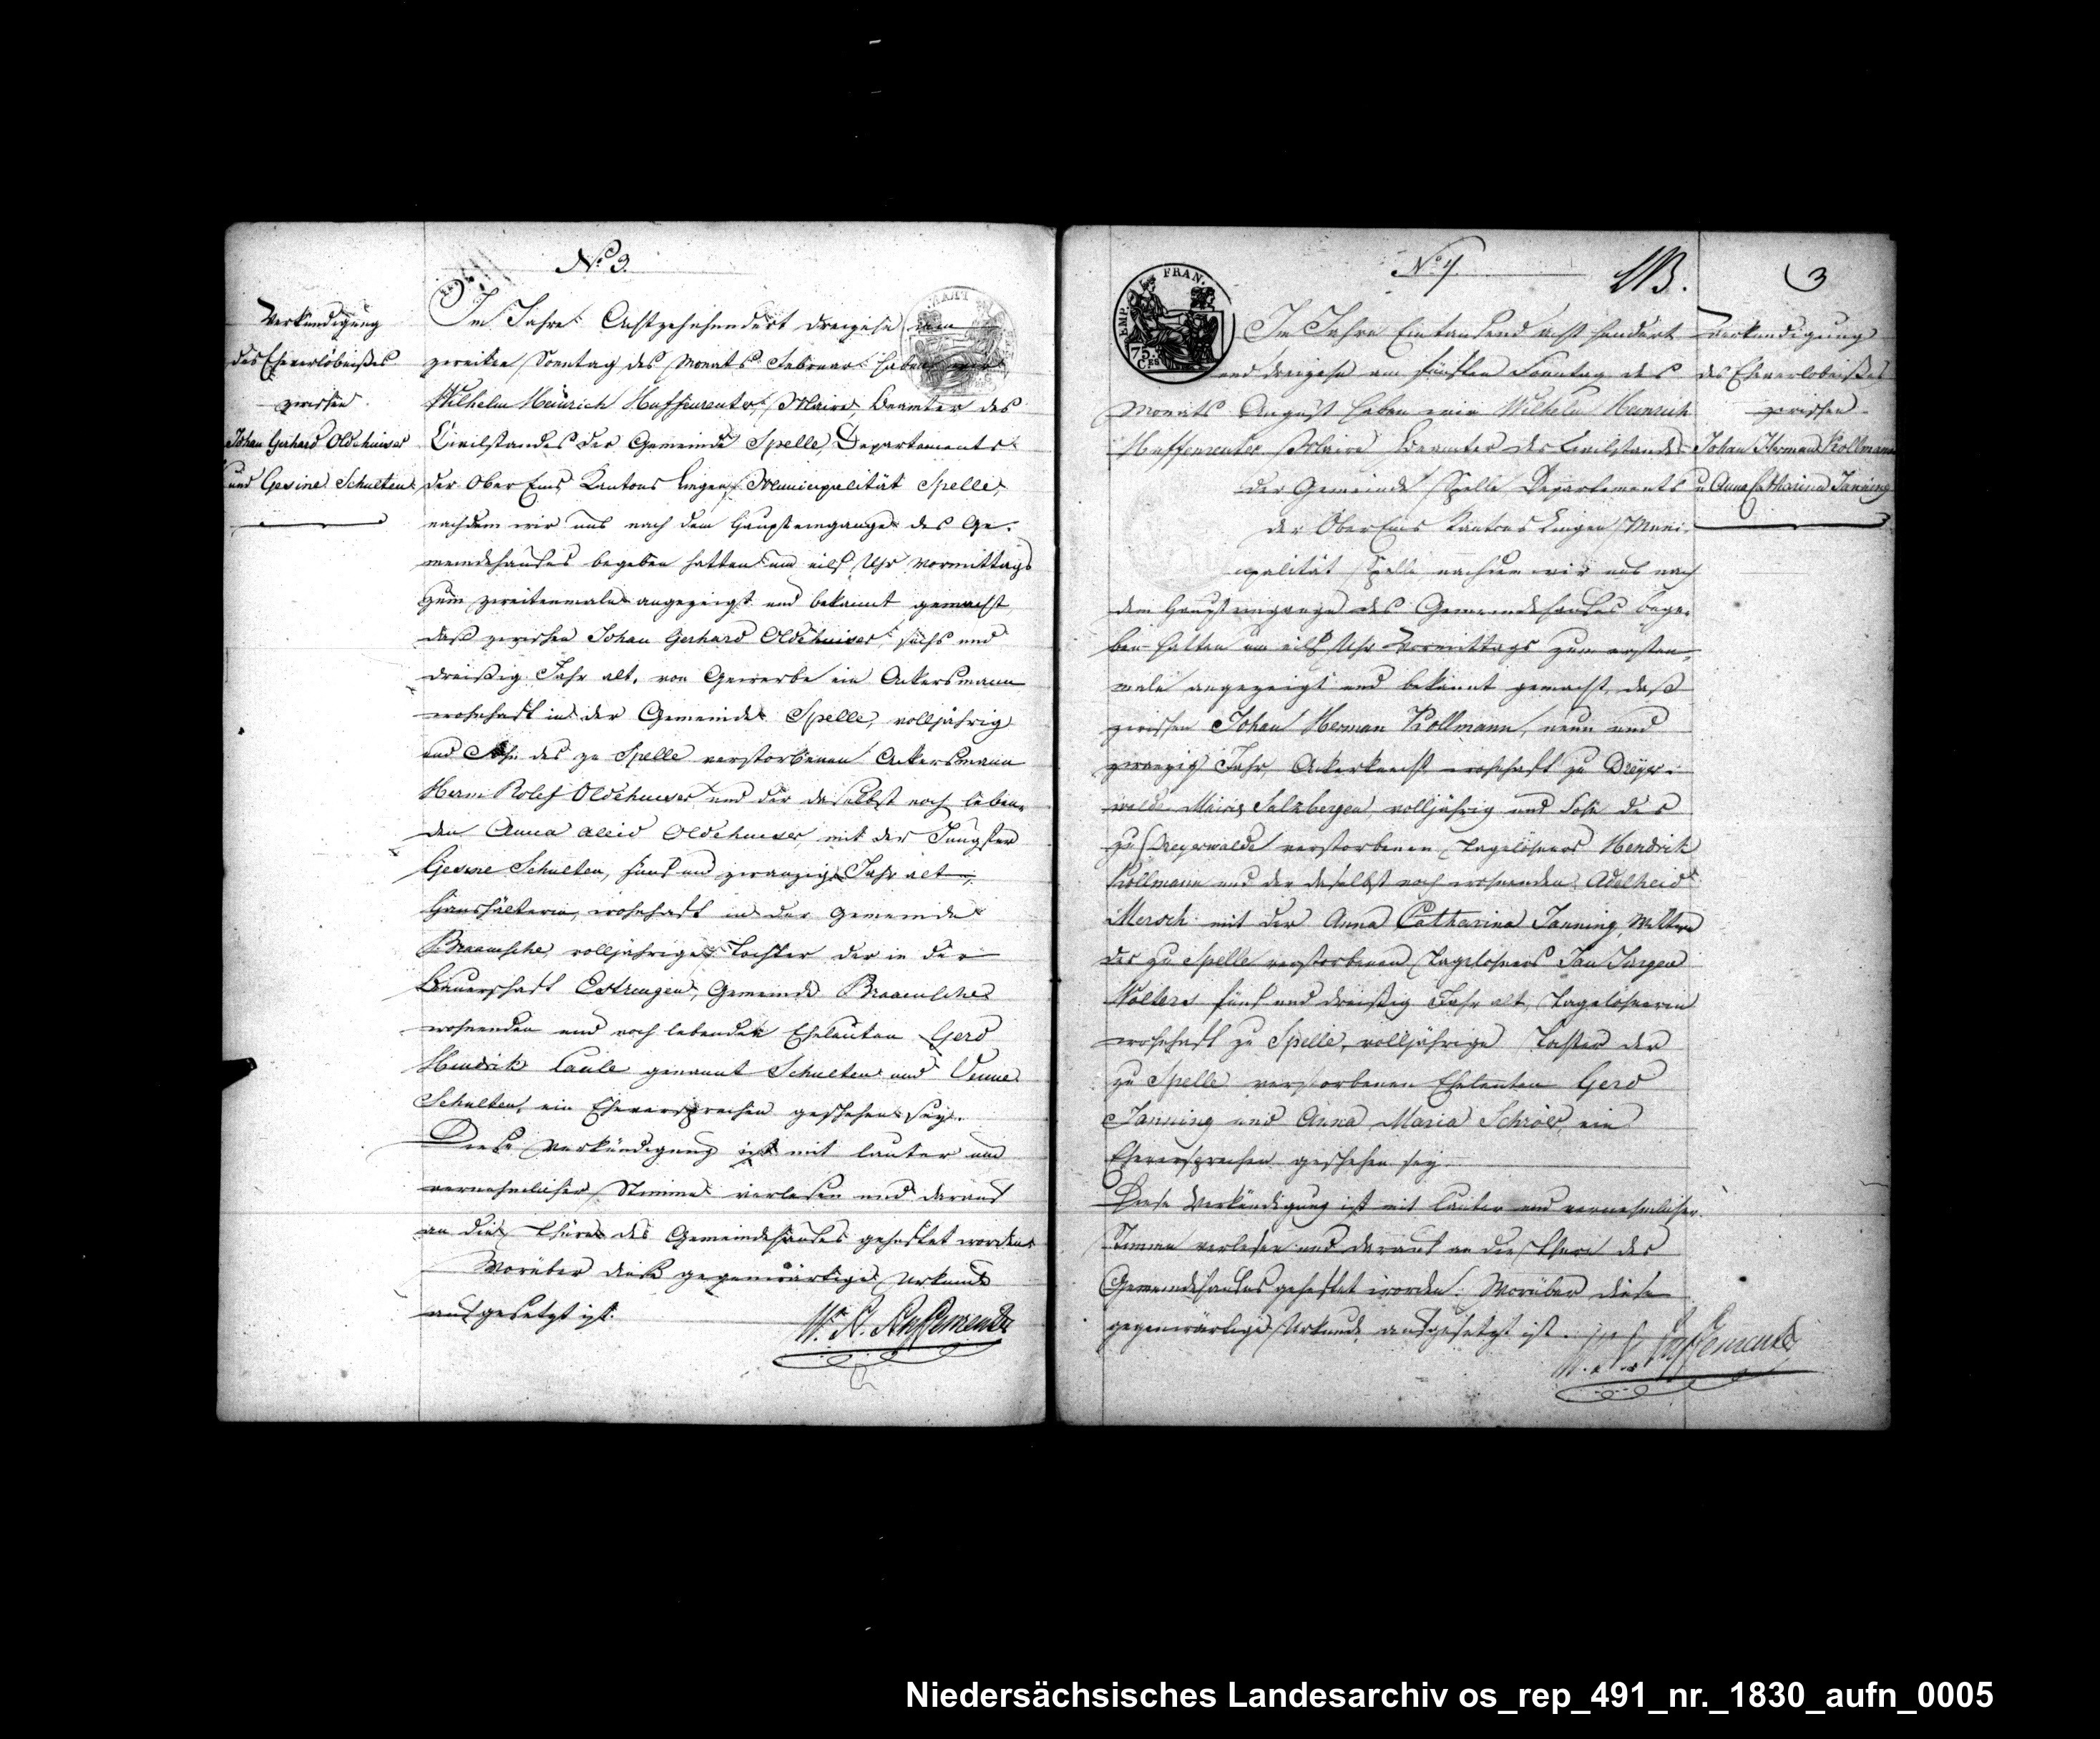 No 3.
Verkündigung
des Eheverlöbnißes
zwischen
Johan Gerhard Oldehuiver
und Gesine Schulten
Im Jahre Achtzehnhundert dreizehn am
zweiten Sonntag des Monats Februar haben wir
Wilhelm Heinrich Huffemreuter, Maire, Beamter des
Civilstandes der Gemeinde Spelle, Departements
der Ober Ems Kantons Lingen, Municipalität Spelle,
nachdem wir uns nach dem Haupteingange des Ge-
meindehauses begeben hatten um eilf Uhr Vormittags
zum zweitenmale angezeigt und bekannt gemacht
daß zwischen Johan Gerhard Oldehuiver, sechs und
dreißig Jahr alt, von Gewerbe ein Ackersmann
wohnhaft in der Gemeinde Spelle, volljährig
und Sohn des zu Spelle verstorbenen Ackersmann
Herm Rolef Oldehuiver und der daselbst noch leben-
den Anna Aleid Oldehuiver, mit der Jungfer
Gesine Schulten, fünf und zwanzig Jahr alt,
Haushälterin, wohnhaft in der Gemeinde
Braamsche, volljährige Tochter der in der
Bauerschaft Estringen, Gemeinde Braamsche
wohnenden und noch lebenden Eheleuten Gerd
Hendrik Caule genannt Schulten und Venne
Schulten, ein Eheversprechen geschehen sey.
Diese Verkündigung ist mit lauter und
vernehmlicher Stimme verlesen und darauf
an die Thüre des Gemeindehauses geheftet worden
Worüber diese gegenwärtige Urkunde
aufgesetzt ist.
W. H. Huffemreuter
No 4.
3
EMP. FRAN.
75. CES
Im Jahre Eintausend acht hundert
und dreizehn am fünften Sonntag des
Monats August haben wir Wilhelm Heinrich
Huffemreuter, Maire Beamter des Civilstandes
der Gemeinde Spelle Departements
der Ober Ems Kantons Lingen Muni-
cipalität Spelle nachdem wir uns nach
dem Haupteingange des Gemeindehauses bege-
ben hatten um eilf Uhr Vormittags zum ersten-
male angezeigt und bekannt gemacht, daß
zwischen Johan Herman Kollmann, neun und
zwanzig Jahr, Ackerknecht wohnhaft zu Dreyer-
walde Mairie Salzbergen, volljährig und Sohn des
zu Dreyerwalde verstorbenen Tagelöhners Hendrik
Kollmann und der daselbst noch wohnenden Adelheid
Mersch mit der Anna Catharina Janning, Wittwe
des zu Spelle verstorbenen Tagelöhners Jan Jurgen
Wolters fünf und dreißig Jahr alt, Tagelöhnerin
wohnhaft zu Spelle, volljährige Tochter der
zu Spelle verstorbenen Eheleuten Gerd
Janning und Anna Maria Schröer, ein
Eheversprechen geschehen sey.
Diese Verkündigung ist mit lauter und vernehmlicher
Stimme verlesen und darauf an die Thüre des
Gemeindehauses geheftet worden. Worüber diese
gegenwärtige Urkunde aufgesetzt ist.
W. H. Huffemreuter
Verkündigung
des Eheverlobnißes
zwischen
Johan Herman Kollmann
u Anna Catharina Janning
Niedersächsisches Landesarchiv os_rep_491_nr._1830_aufn_0005